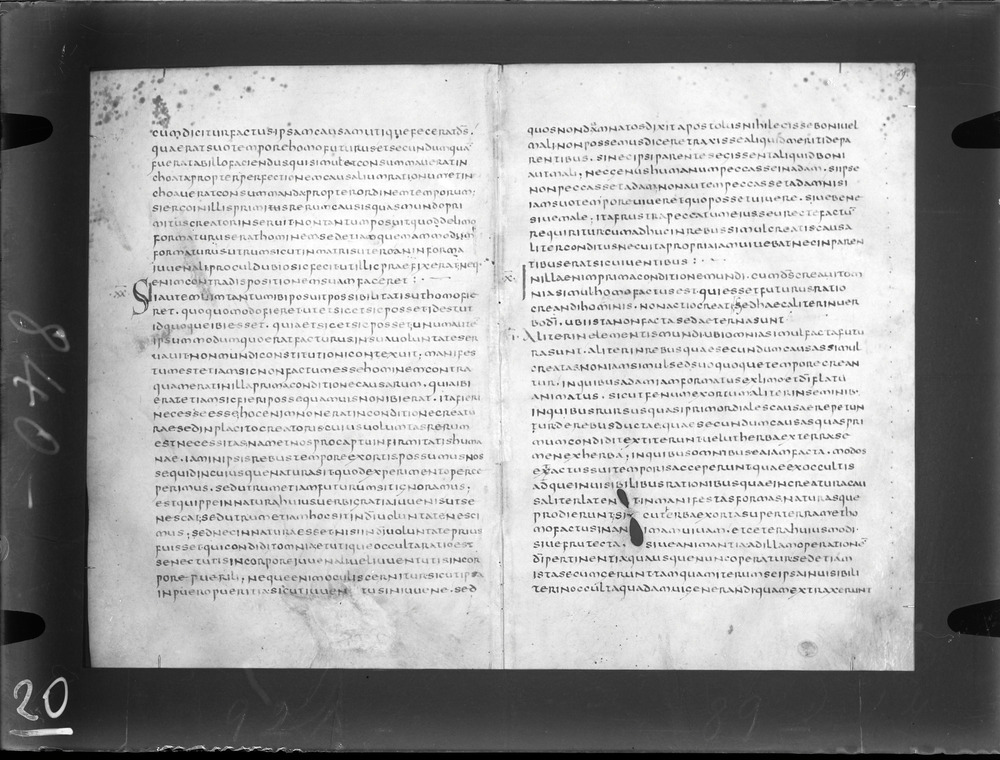 cumdiciturfactusipsamcausamutiquefeceratds.
quaeratsuotemporehomofuturusetsecundumqua
fueratabillofaciendusquisimuletconsummaueratin
choataproptererperfectionemcausaliumrationumetin
choaueratconsummandapropterordinemtemporum;
sierгоinillisprimisrerumcausisquasmundopri
mituscreatorinseruitnontantumposuitquoddelimo
formaturuserathominemsedetiamquemammodum
formaturusutrumsicutinmatrisuteroaninforma
iuuenaliproculdubiosicfecitutillicpraefixeratneq.
enimcontradispositionemsuamfaceret:
xx Siautemlimtantumibiposuitpossibilitatisuthomofie
ret. quoquomodofieretutetsicetsicpossetidestut
idquoqueibiesset. quiaetsicetsicpossetunumaute
ipsummodumquoeratfacturusinsuauoluntateser
uauitnonmundiconstitutionicontexuit; manifes
tumestetiamsicnonfactumessehominemcontra
quameratinillaprimaconditionecausarum. quiaibi
eratetiamsicfieripossequamuisnonibierat. itafieri
necesseessehocenimnoneratinconditionecreatu
raesedinplacitocreatoriscuiusuoluntasrerum
estnecessitasnametnosprocaptuinfirmitatishuma
nae. iaminipsisrebustemporeexortispossumusnos
sequidincuiusquenaturasitquodexperimentoperce
perimus. sedutrumetiamfuturumsitignoramus;
estquippeinnaturahuiusuerbigratiaiuuenisutse
nescat; sedutrumetiamhocsitindiuoluntatenesci
mus; sedneсinnaturaessetnisiindiuoluntateprius
fuissetquicondiditomniaetutiqueoccultaratioest
senectutisincorporeiuuenalueliuuentutisincor
porepuerili; nequeenimoculiscerniturs icutipsa
inpueropueritiasicutiuuen tusiniuuene. sed
quosnondamnatosdixitapostolusnihilegissebonivel
malinonpossemusdiceretraxissealiquidmeritidepa
rentibus. sinecipsiparentesegissentaliquidboni
autmali; necgenushumanumpeccasseinadam. siipse
nonpeccassetadamnonautempeccassetadamnisi
iamsuotemporeuiueretquopossetuiuere. siuebene
siuemale; itafrustrapeccatumeiusseurectefactu
requiriturcumadhucinrebussimulcreatiscausa
literconditusnecuitapropriaiamuiuebatnecinparen
tibuseratsicuiuentibus:
xx. Inillaenimprimaconditionemundi. cumdscreauitom
niasimulhomofactusestquiessetfuturusratio
creandihominis. nonactiocreatisedhaecaliterinuer
bodi. ubiistanonfactasedaeternasunt
Aliterinelementismundiubiomniasimulfactafutu
rasunt. aliterinrebusquaesecundumcausassimul
creatasnoniamsimulsedsuoquoquetemporecrean
tur. inquibusadamiamformatusexlimoetdiflatu
animatus. sicutfenumexortumaliterinseminib.
inquibusrursusquasiprimordialescausaerepetun
turderebusductaequaesecundumcausasquaspri
mumcondiditextiteruntuelutherbaexterrase
menexherba; inquibusomnibuseaiamfacta. modos
etactussuitemporisacceperuntquaeexoccultis
adqueinuisibilibusrationibusquaeincreaturacau
saliterlaten tinmanifestasformasnaturasque
prodierunt;si cutherbaexortasuperterrametho
mofactusinan imamuiuam. etceterahuiusmodi.
siuefrutecta. siueanimantiaadillamoperatione
dipertinentiaquausquenuncoperatursedetiam
istasecumgerunttamquamiterumseipsainuisibili
terinoccultaquadamuigenerandiquamextraxerunt
20
840